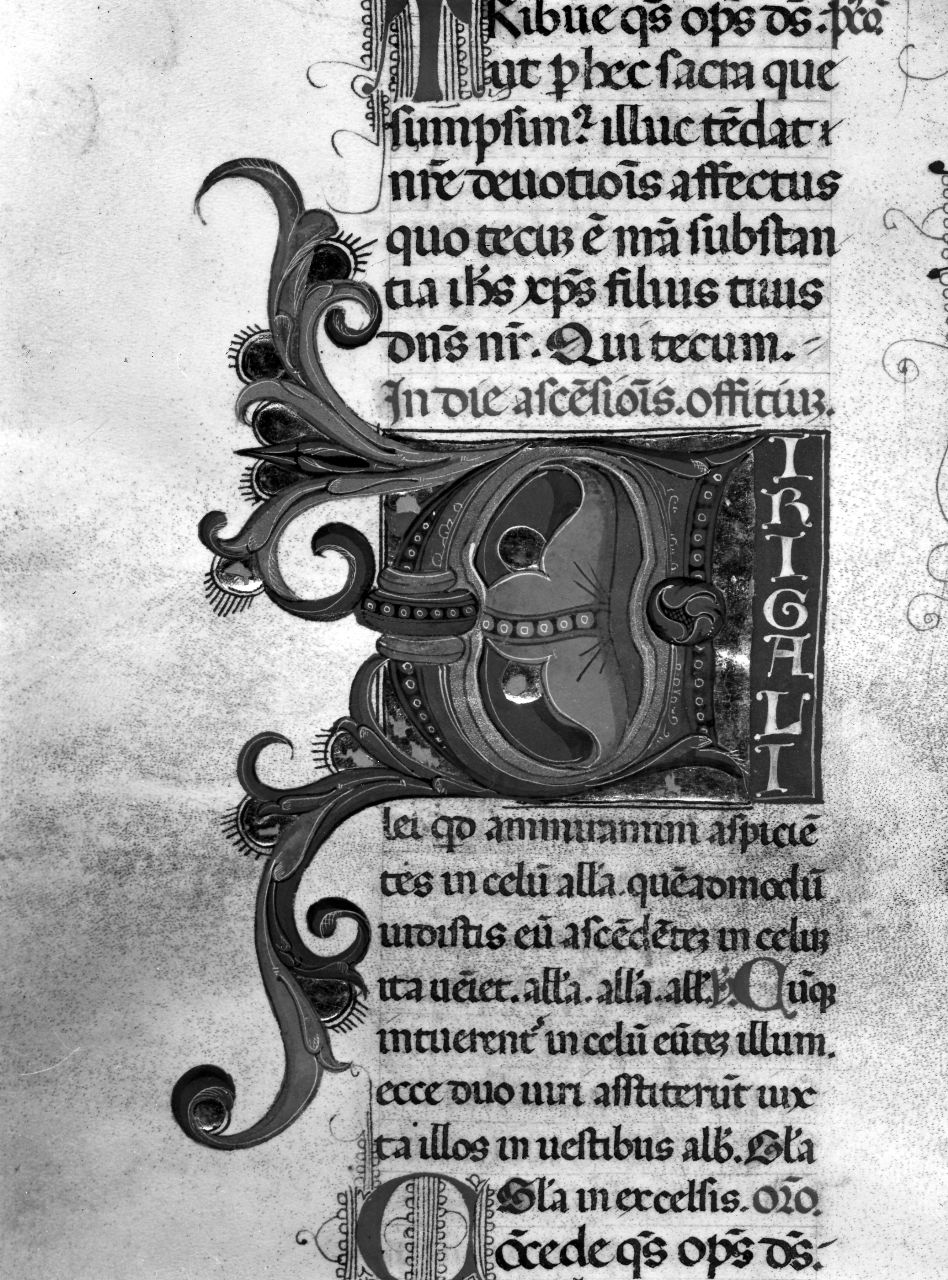 Tribue qs̄ op̄s ds̄. pc̄o
ut p hec sacra que
sumpsim illuc tēdat
nr̄e deuotiōis affectus
quo tecuʒ ē nr̄a substan
tia ih̄s xp̄s filius tuus
dn̄s nr̄. Qui tecum.
In die ascēsiōis. offitiuʒ.
UIRI GALI
lei qd ammiramini aspiciē
tes in celū all'a. quēadmodū
uidistis eū ascēdēteʒ in celuʒ
ita uēiet. all'a. all'a. all'. Cūqʒ
intuerent᷑ in celū eūteʒ illum.
ecce duo uiri astiterūt iux
ta illos in uestibus alb'. Gl'a
Gl'a in excelsis. oro̅.
Cōcede qs̄ op̄s ds̄.